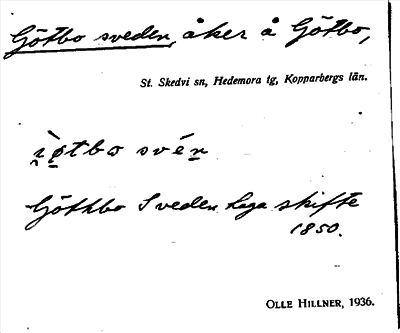 Götbo sveden, åker å Götbo,
St. Skedvi sn, Hedemora tg, Kopparbergs län.
i̯ø̀tbo svén
Göthbo Sveden Laga skifte
1850.
OLLE HILLNER, 1936.